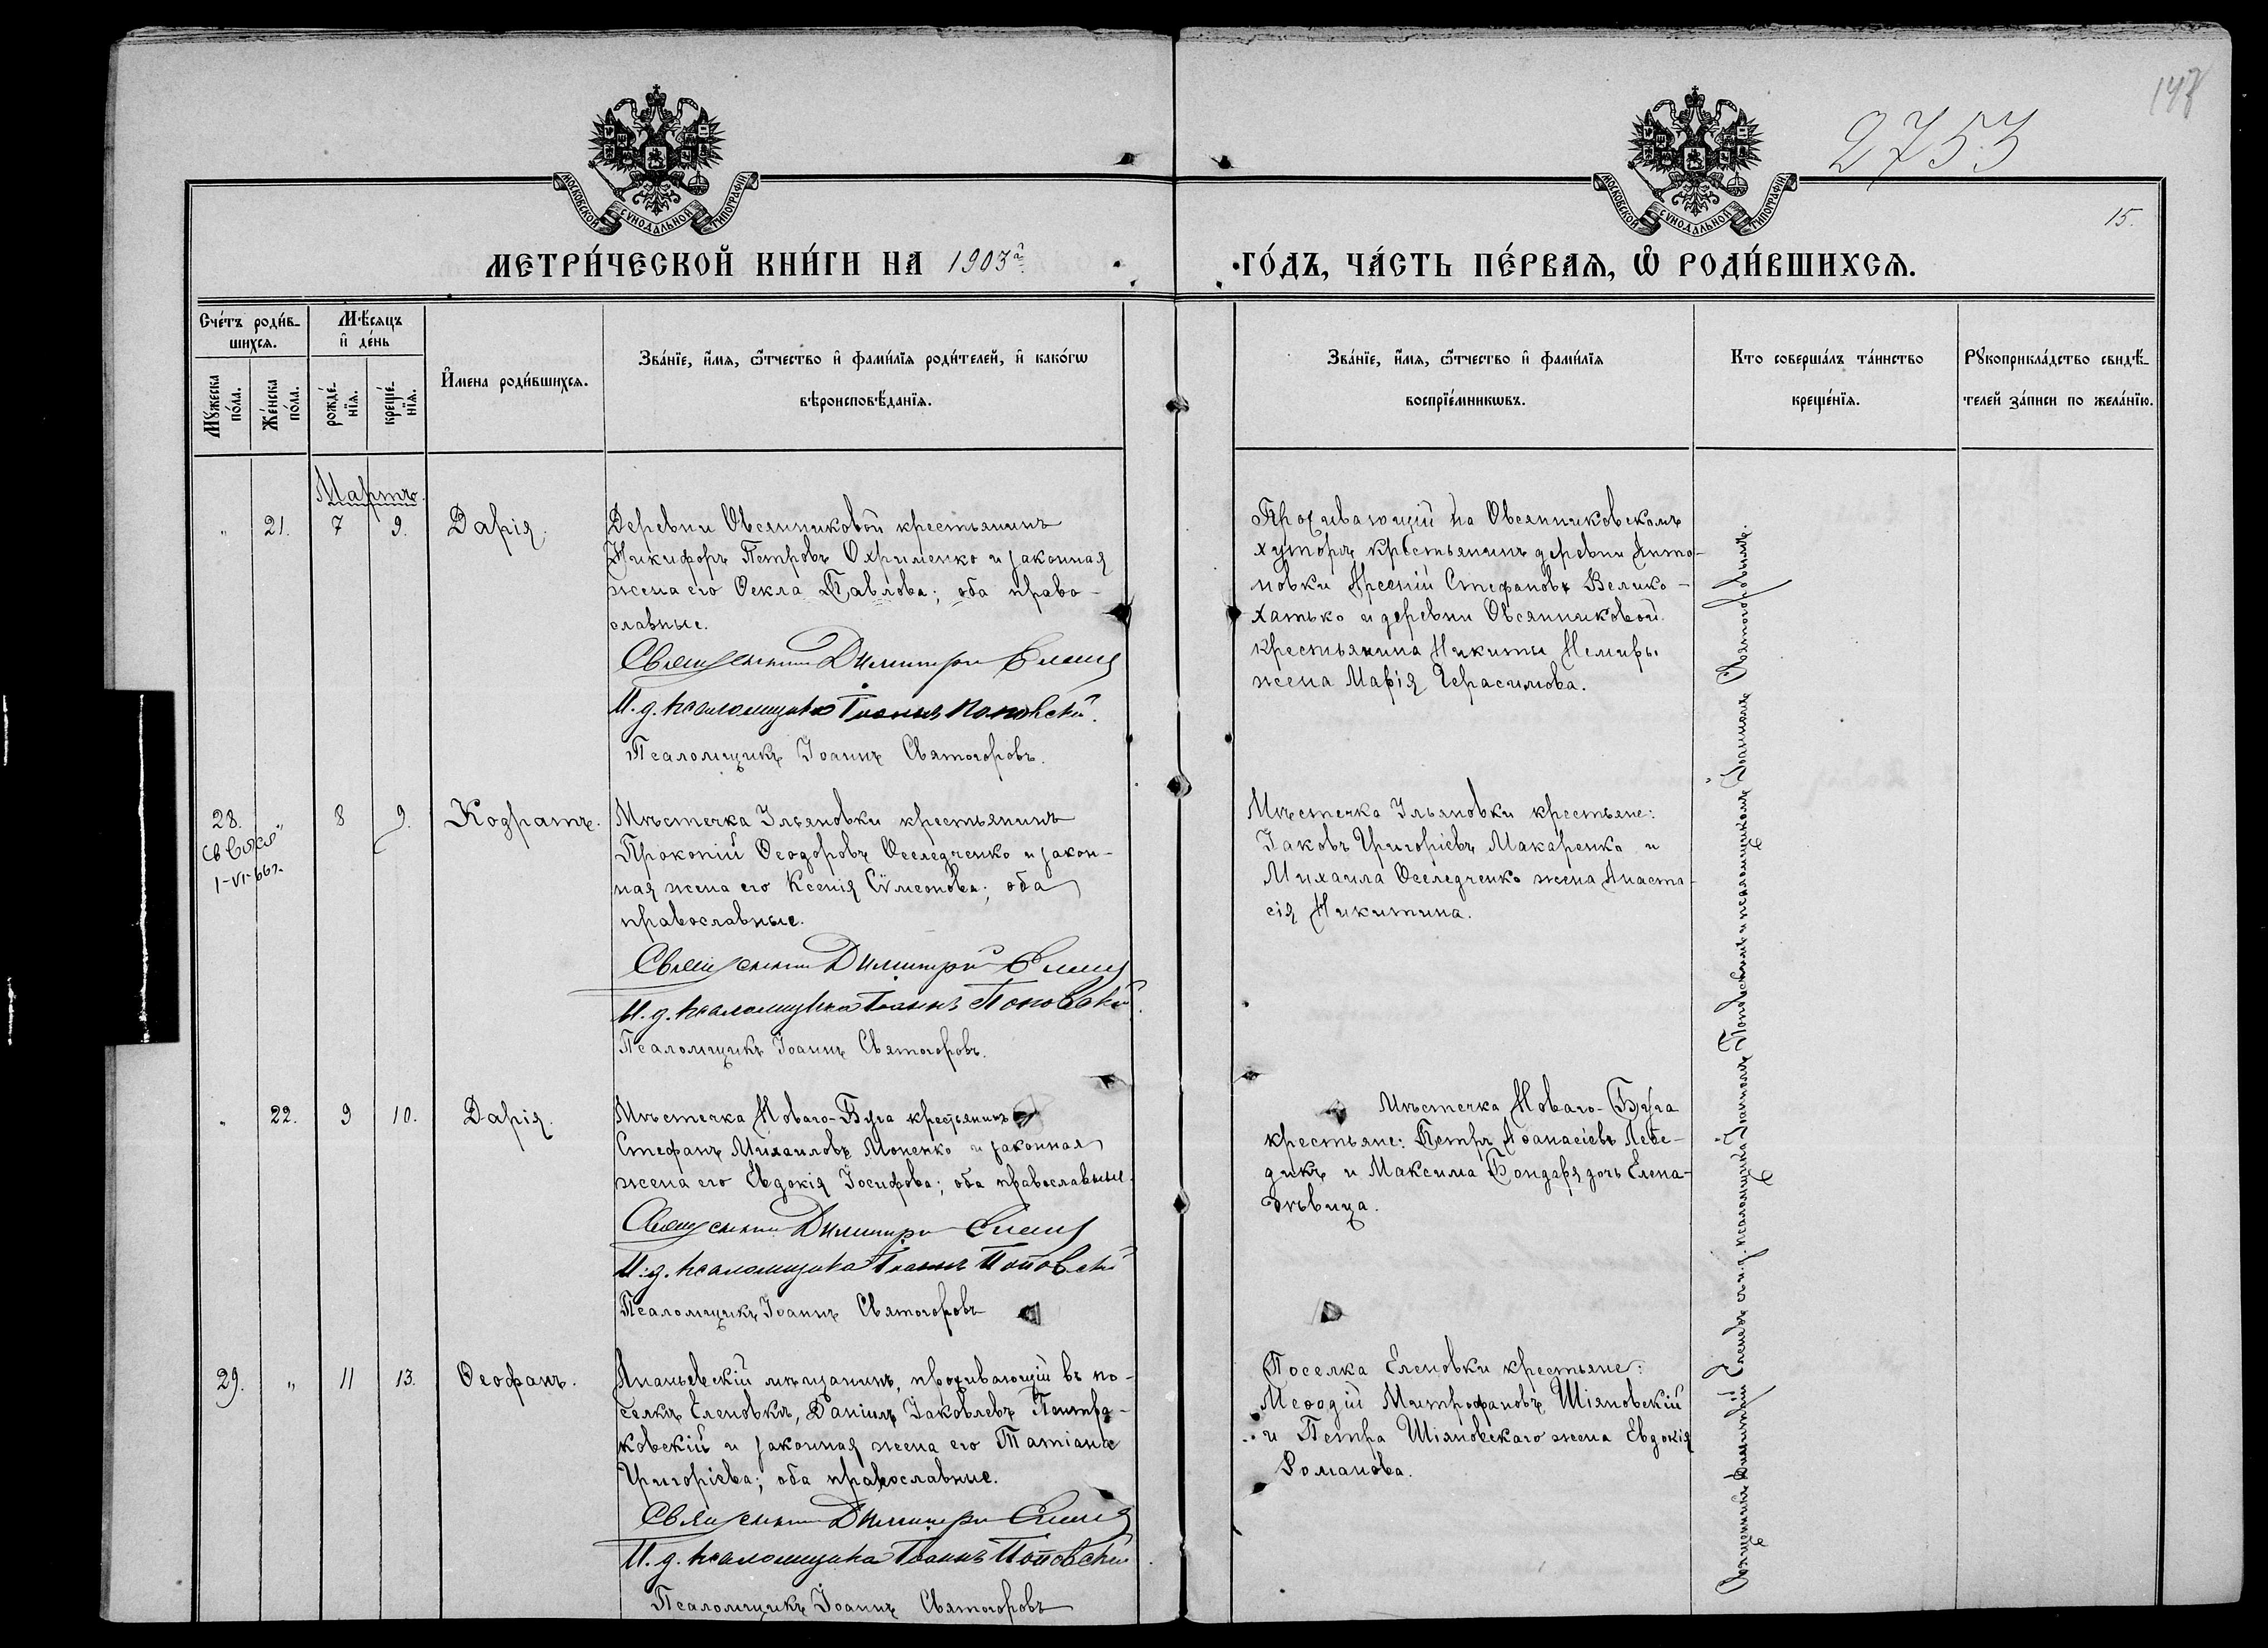 148
2753
15.
МОСКОВСКОЙ СѴНОДАЛЬНОЙ ТИПОГРАФІИ
МОСКОВСКОЙ СѴНОДАЛЬНОЙ ТИПОГРАФІИ
МЕТРИ́ЧЕСКОЙ КНИ́ГИ НА 1903й
ГО́ДЪ, ЧА́СТЬ ПЕ́РВАѦ, Ѽ РОДИ́ВШИХСѦ.
Сче́тъ роди́в-
шихсѧ.
Мꙋ́жеска по́ла.
Же́нска по́ла.
Мѣ́сѧцъ
и҆ де́нь
рожде́-
нїѧ.
креще́-
нїѧ.
И҆мена роди́вшихсѧ.
Зва́нїе, и҆́мѧ, ѻ҆́тчество и҆ фами́лїѧ роди́телей, и҆ како́гѡ
вѣроисповѣ́данїѧ.
Зва́нїе, и҆́мѧ, ѻ҆́тчество и҆ фами́лїѧ
воспрїе́мникѡвъ.
Кто соверша́лъ та́инство
креще́нїѧ.
Рꙋкоприкла́дство свидѣ́-
телей за́писи по жела́нїю.
Мартъ.
" 21. 7 9. Дарія.
Деревни Овсянниковой крестьянинъ
Никифоръ Петровъ Охрименко и законная
жена его Ѳекла Павлова; оба право-
славные.
Священникъ Димитрій
И. д. псаломщика Іоаннъ Поповскій.
Псаломщикъ Іоаннъ Святогоровъ.
Проживающій на Овсянниковскомъ
хуторѣ крестьянинъ деревни Анто-
новки Арсеній Стефановъ Велико-
хатько и деревни Овсянниковой
крестьянина Никиты Немиры
жена Марія Герасимова.
28. " 8 9. Кодратъ.
1-VI-66г.
Мѣстечка Ильяновки крестьянинъ
Прокопій Ѳеодоровъ Оселедченко и закон-
ная жена его Ксенія Сѵмеонова; оба
православные.
Священникъ Димитрій
И. д. псаломщика Іоаннъ Поповскій.
Псаломщикъ Іоаннъ Святогоровъ.
Мѣстечка Ильяновки крестьяне:
Іаковъ Григоріевъ Макаренко и
Михаила Оселедченко жена Анаста-
сія Никитина.
" 22. 9 10. Дарія.
Мѣстечка Новаго-Буга крестьянинъ
Стефанъ Михаиловъ Моненко и законная
жена его Евдокія Іосифова; оба православные.
Священникъ Димитрій
И. д. псаломщика Іоаннъ Поповскій
Псаломщикъ Іоаннъ Святогоровъ
Мѣстечка Новаго-Буга
крестьяне: Петръ Аѳанасіевъ Лебе-
дикъ и Максима Бондаря дочь Елена-
дѣвица.
29. " 11 13. Ѳеофанъ.
Ананьевскій мѣщанинъ, проживающій въ по-
селкѣ Еленовкѣ, Даніилъ Іаковлевъ Пентра-
ковскій и законная жена его Татіана
Григоріева; оба православные.
Священникъ Димитрій
И. д. псаломщика Іоаннъ Поповскій
Псаломщикъ Іоаннъ Святогоровъ
Поселка Еленовки крестьяне:
Меѳодій Митрофановъ Шіяновскій
и Петра Шіяновскаго жена Евдокія
Романова.
Священникъ Димитрій съ и. д. псаломщика Іоанномъ Поповскимъ и псаломщикомъ Іоанномъ Святогоровымъ.